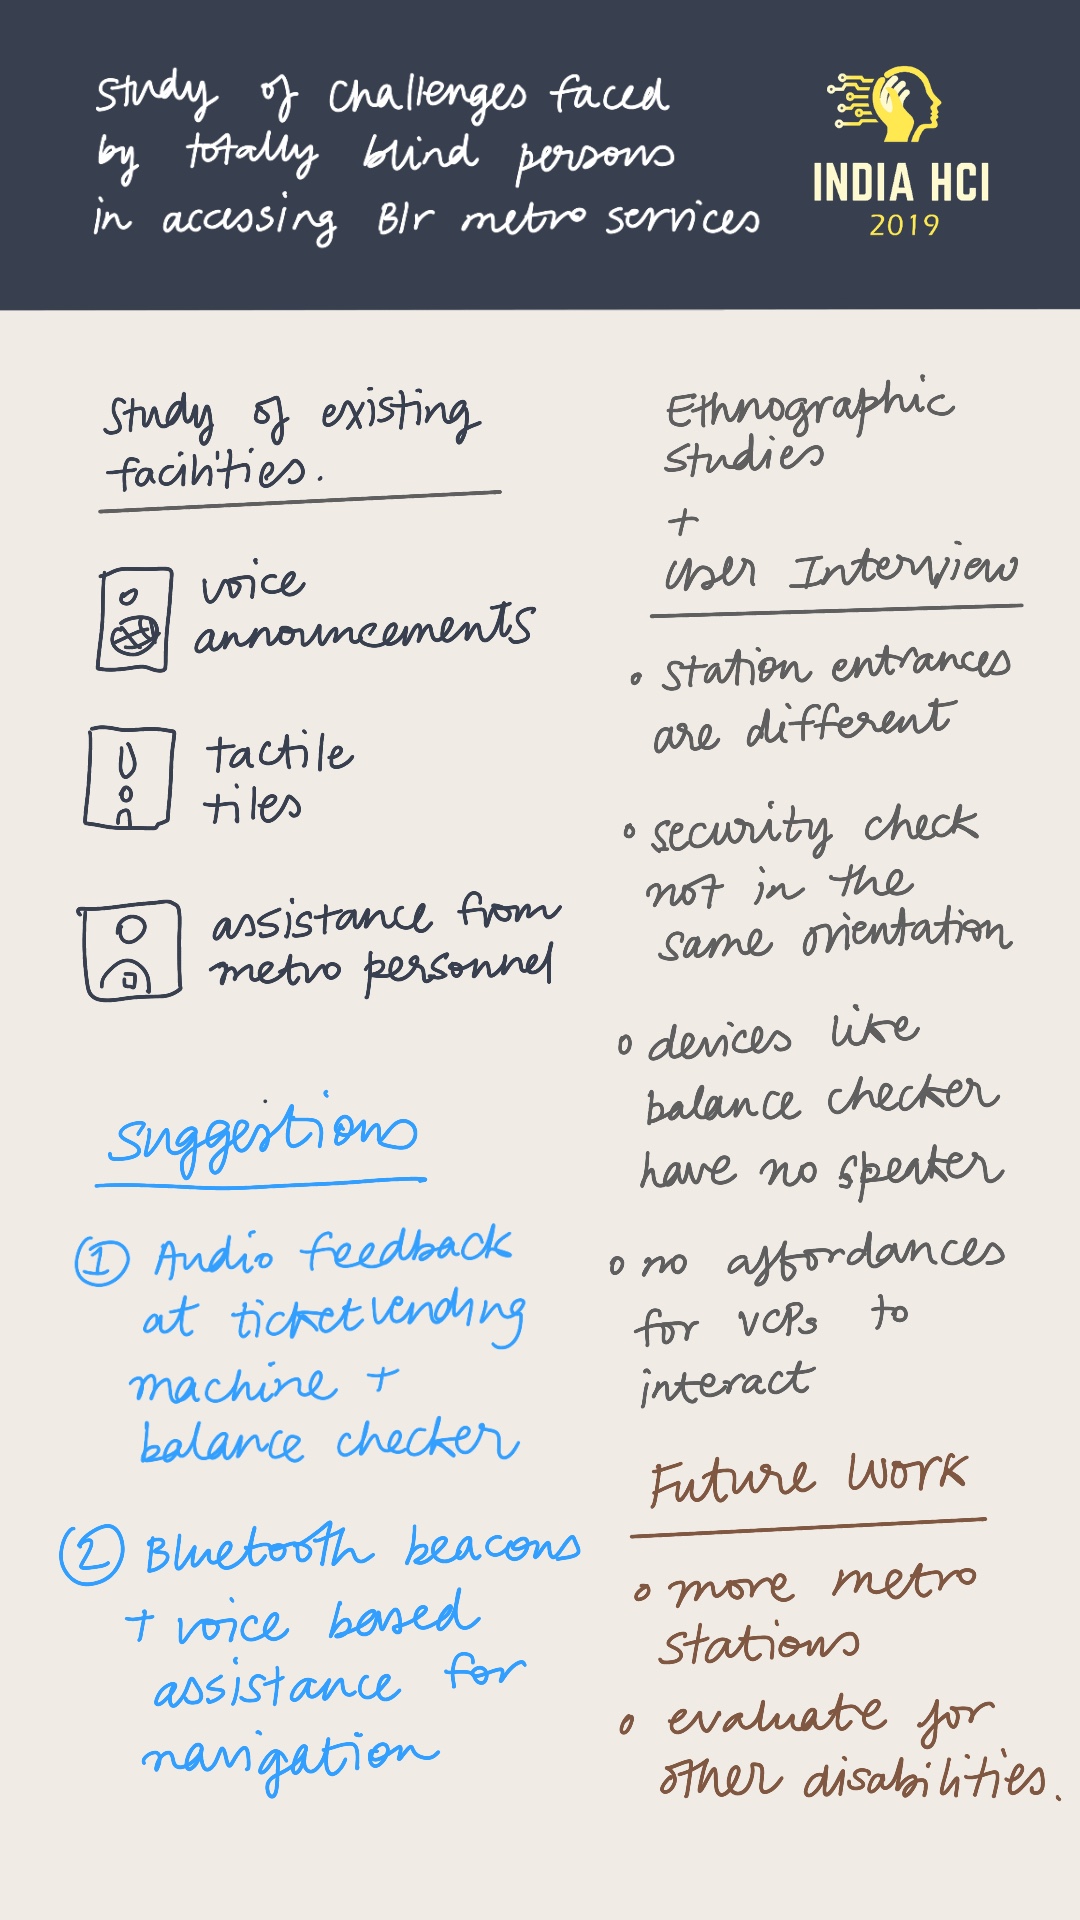 Study of challenges faced
by totally blind persons
in accessing Blr metro services
INDIA HCI
2019
Study of existing
facilities.
voice
announcements
tactile
tiles
assistance from
metro personnel
Suggestions
1 Audio feedback
at ticket vending
machine +
balance checker
2 Bluetooth beacons
+ voice based
assistance for
navigation
Ethnographic
Studies
+
User Interview
station entrances
are different
security check
not in the
same orientation
devices like
balance checker
have no speaker
no affordances
for VCPs to
interact
Future Work
more metro
stations
evaluate for
other disabilities.